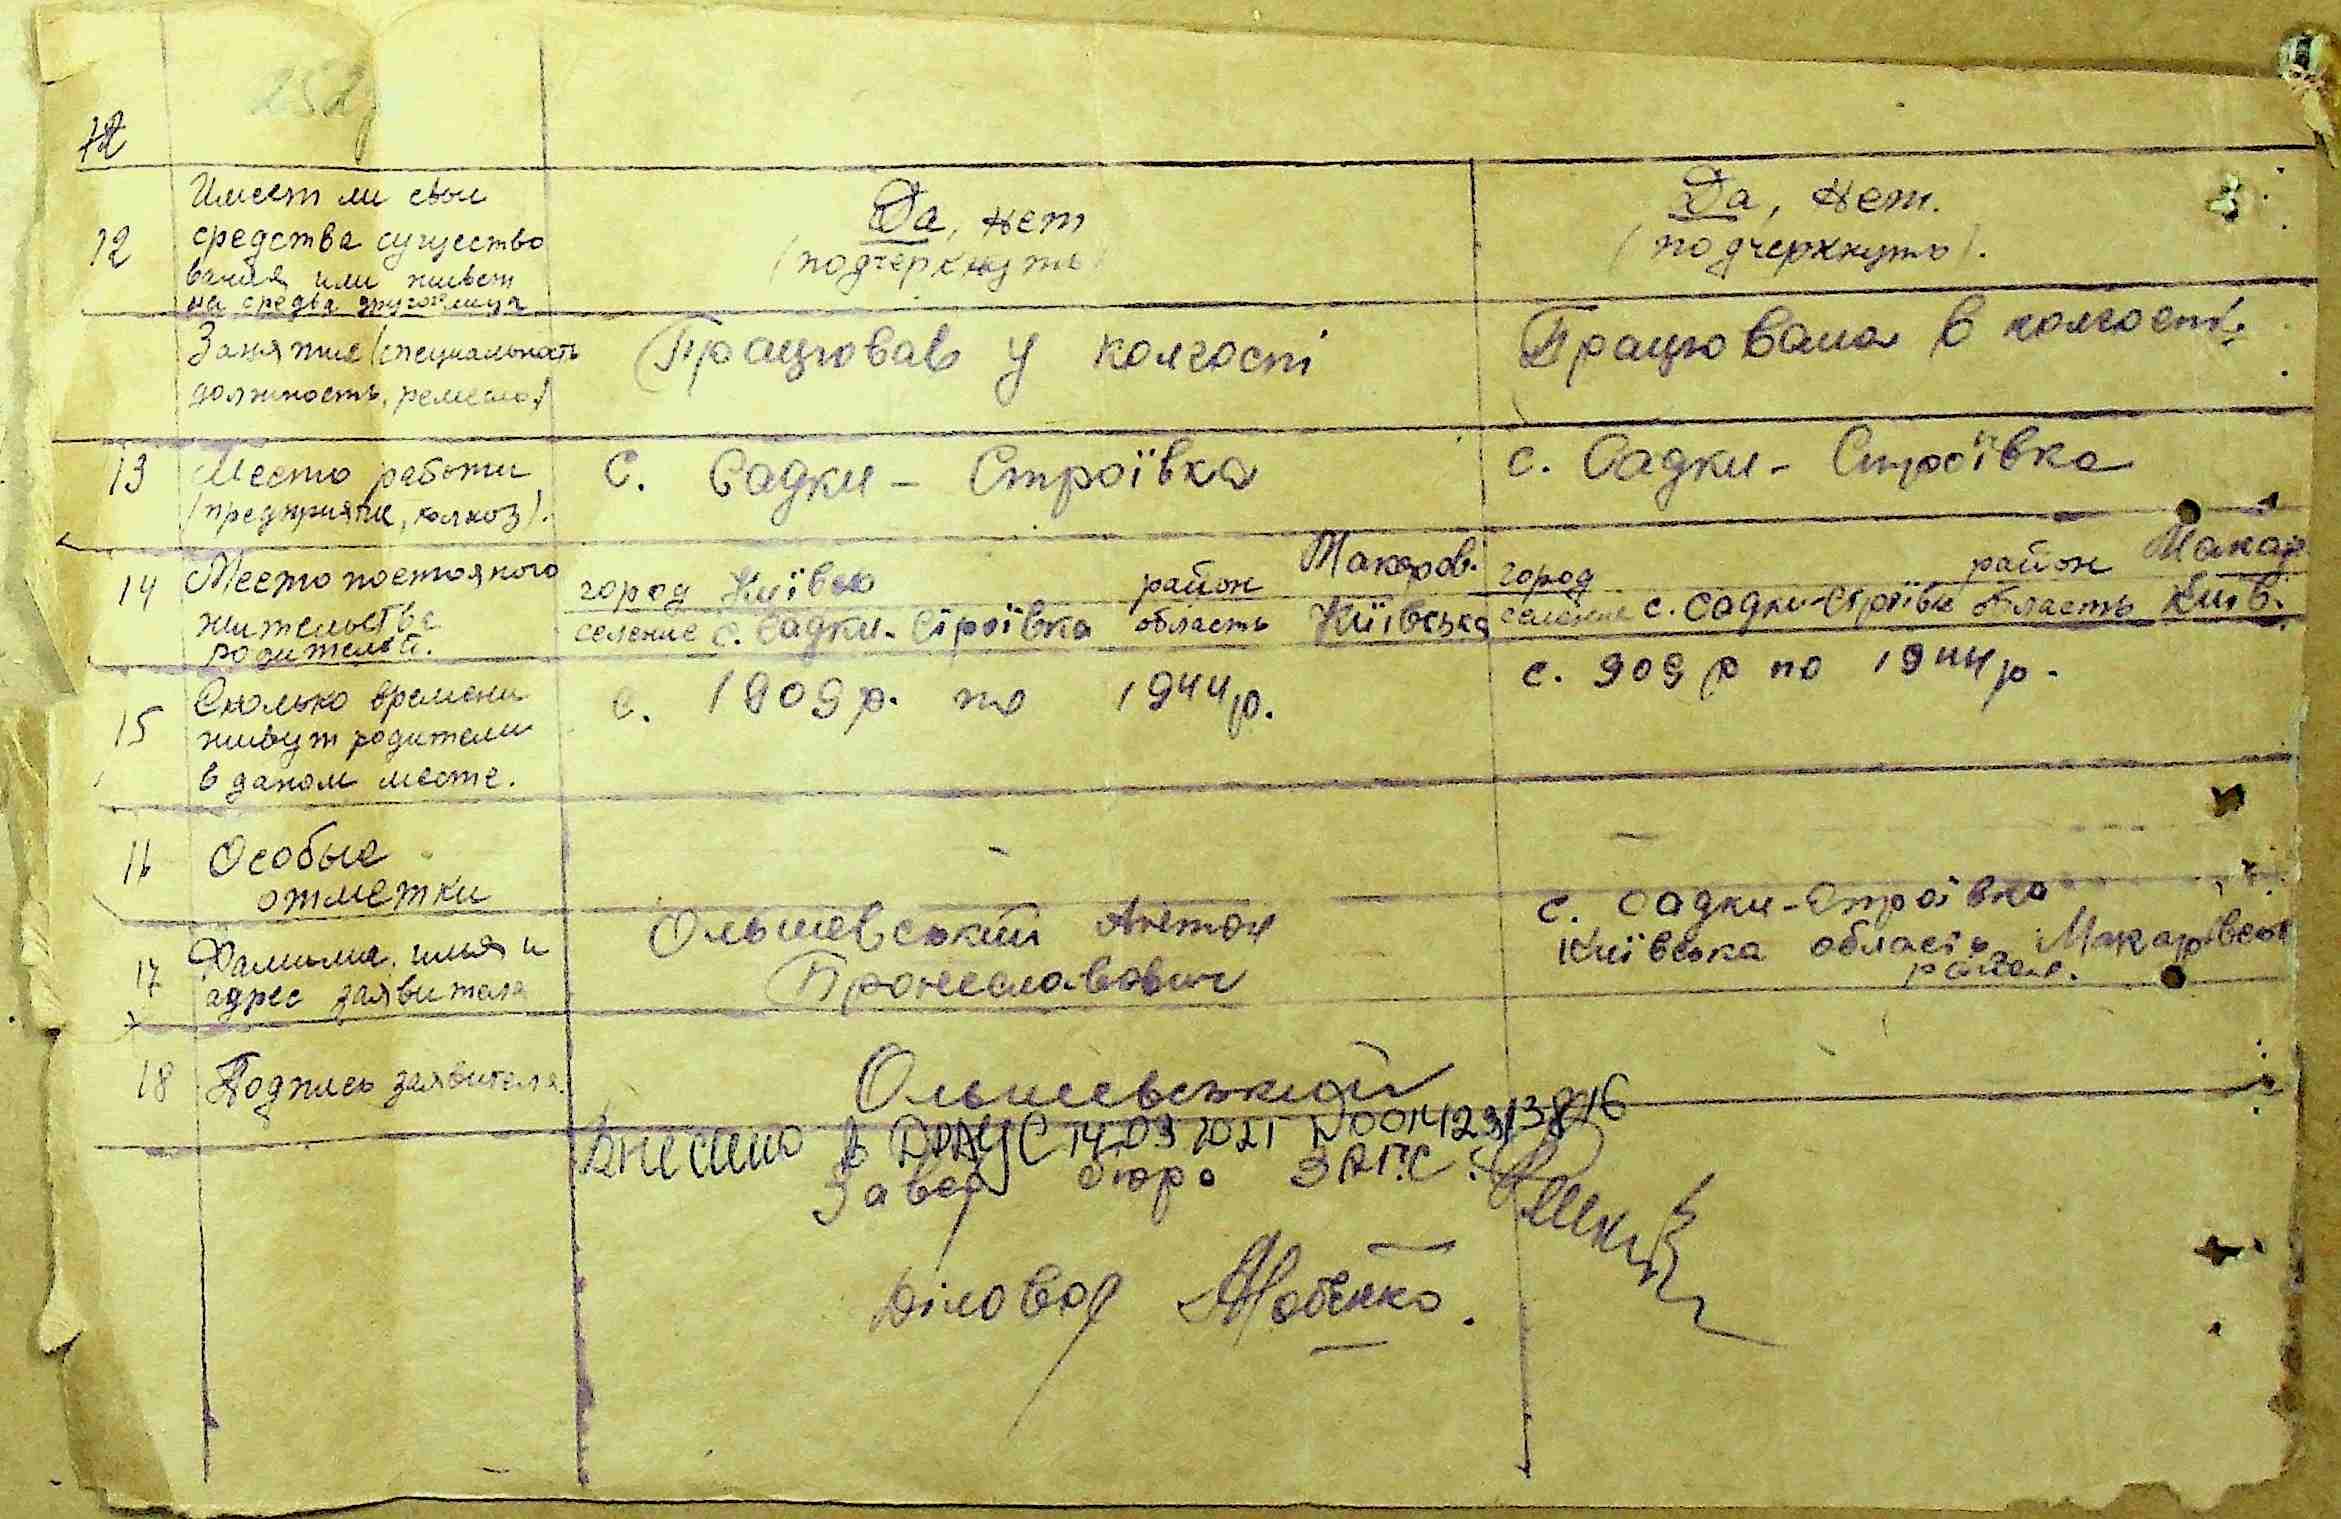 252
12
12
Имеет ли свои
средства существо
вания или живет
на средва другого лица
Да, нет
(подчеркнуть)
Да, нет.
(подчеркнуть).
Занятие (специальность
должность, ремесло)
Працював у колгості
Працювала в колгості
13
Место работи
(предприятие, колхоз).
С. Садки - Строївка
с. Садки - Строївка
14
Место постояного
жительства
родителей.
город Київсь район Макаров.
селение с. Садки - Строївка область Київська
город район Макар
селение с. Садки-Строївк область Київ.
15
Сколько времени
живут родители
в даном месте.
с. 1909 р. по 1944 р.
с. 909 р по 1944 р.
16
Особые
отметки
-
-
17
Фамилие, имя и
адрес заявителя
Ольшевський Антон
Пронеславович
с. Садки-Строївка
Київська область Макарівськ
район.
18
Подпись заявителя
Ольшевський
Внесено в ДРАЦС 14 09 2021 N00142913816
Завед бюро ЗАГС
Діловод